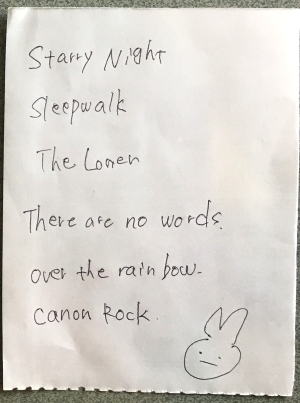 Starry Night
Sleepwalk
The Loner
There are no words.
over the rainbow-
Canon Rock.